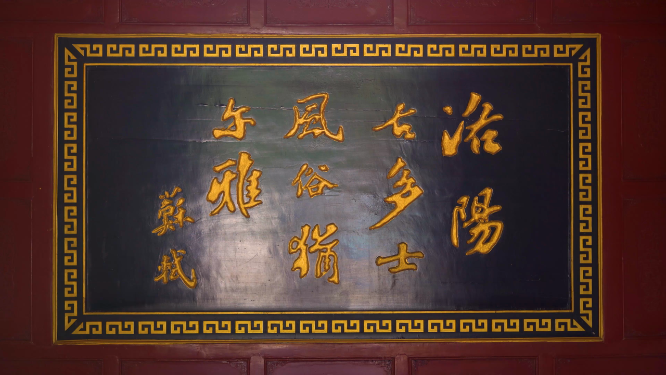 洛陽
古多士
風俗猶
尓雅
蘇軾